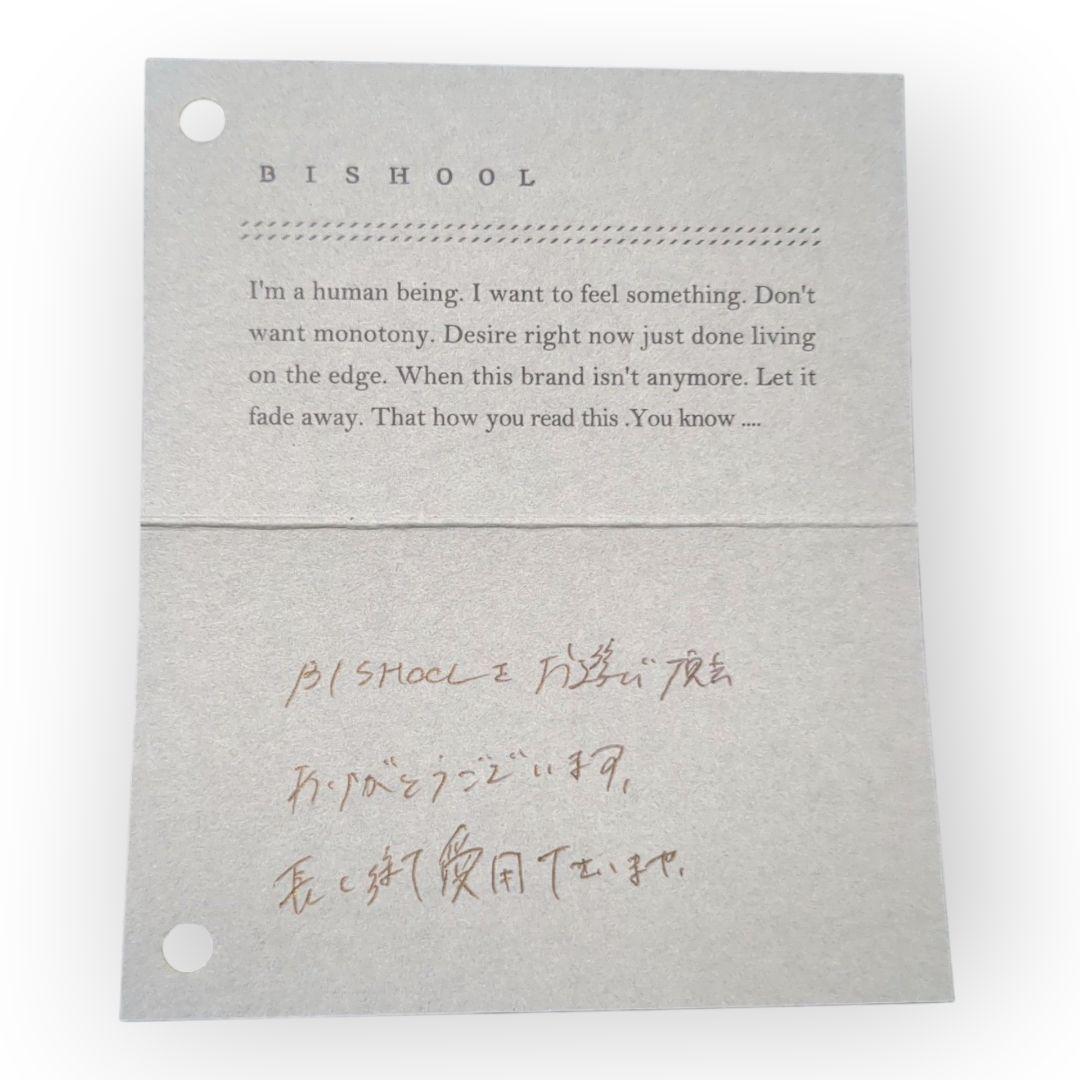 BISHOOL
I'm a human being. I want to feel something. Don't
want monotony. Desire right now just done living
on the edge. When this brand isn't anymore. Let it
fade away. That how you read this .You know ....
BISHOOLを お選び頂き
ありがとうございます。
長く 愛用下さいませ。